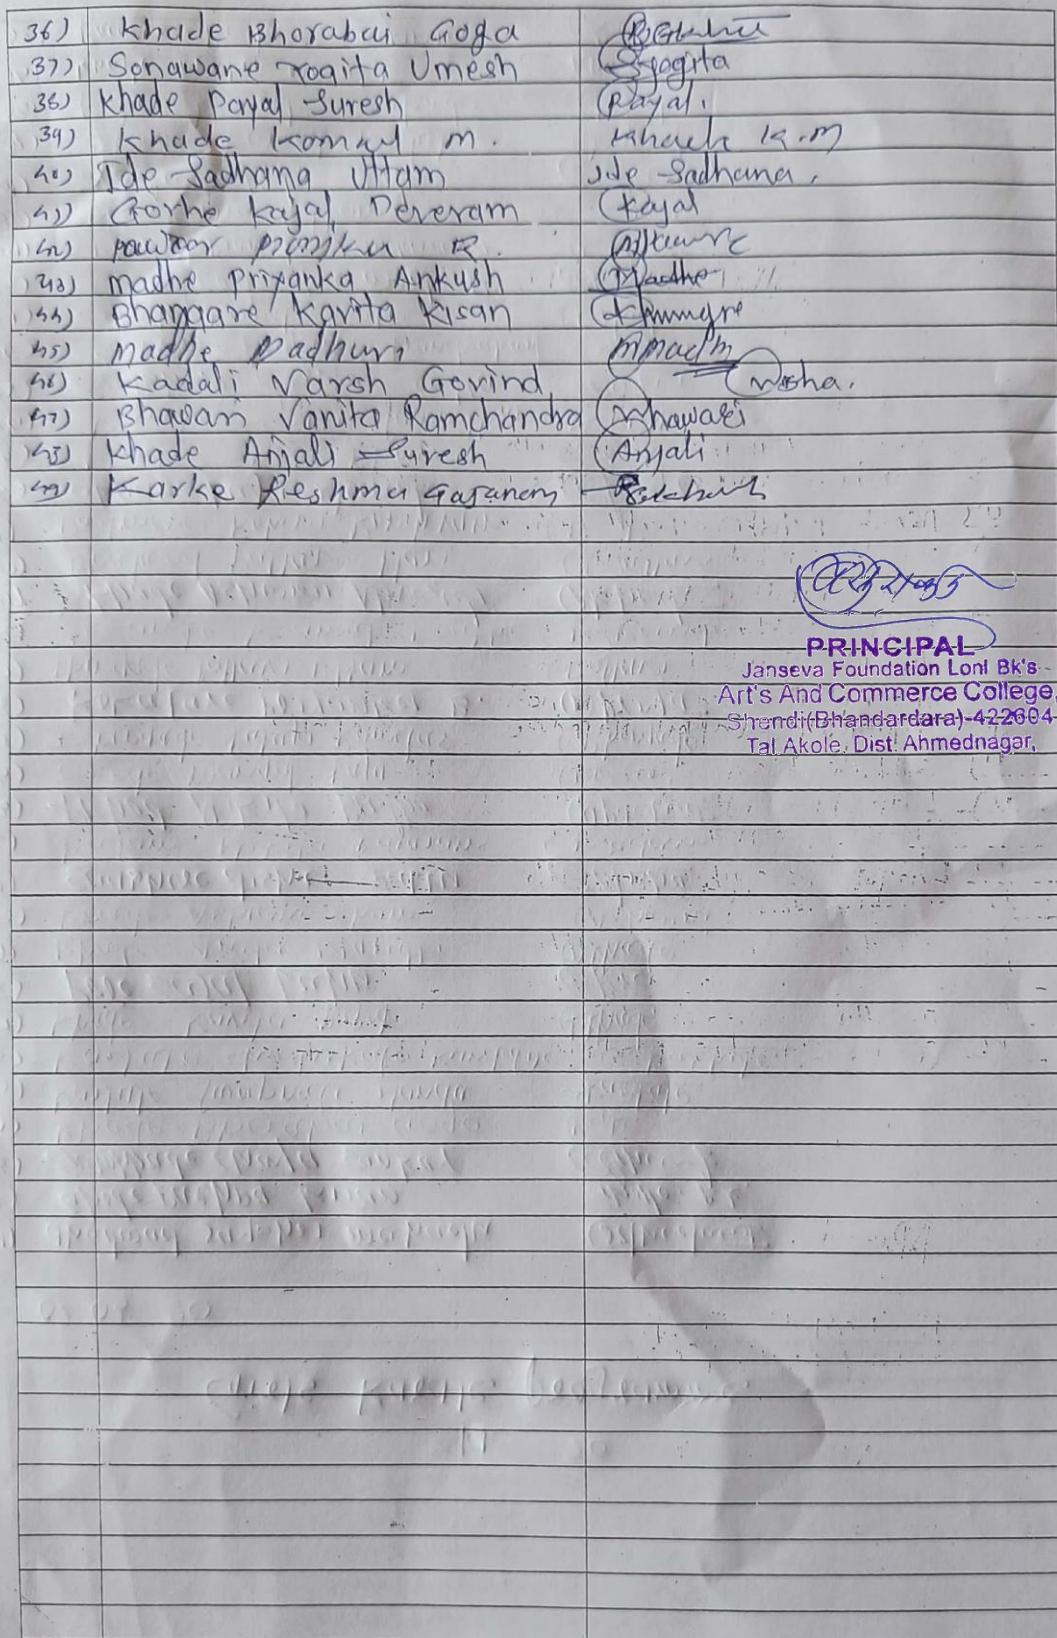 36) Khade Bhorabai Goga
37) Sonawane Yogita Umesh Syogita
38) Khade Payal Suresh Payal.
39) Khade Komal m. Khade K.m
40) Ide Sadhana Uttam Ide Sadhana.
41) Gorhe Kajal Deveram Kajal
42) R.
43) madhe Priyanka Ankush Madhe
44) Bhangare Kavita Kisan
45) madhe Madhuri
46) Kadali Varsh Govind
47) Bhawari Vanita Ramchandra Bhawari
48) Khade Anjali Suresh Anjali
49) Karke Reshma Gajanan
PRINCIPAL
Janseva Foundation Loni Bk's
Art's And Commerce College
Shendi(Bhandardara)-422604
Tal Akole, Dist. Ahmednagar,